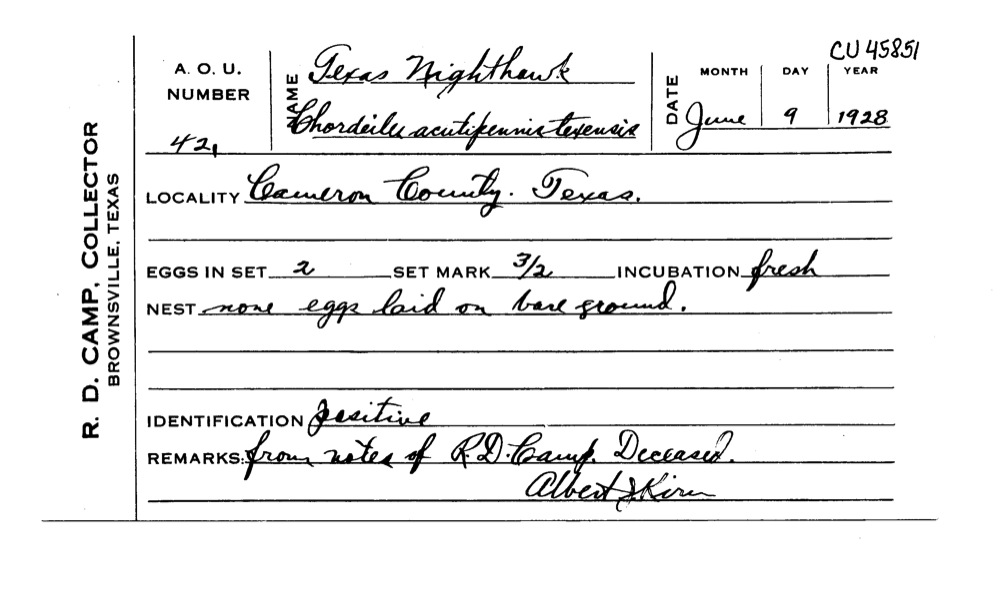 CU 45851
A. O. U. NUMBER 421
NAME Texas Nighthawk
Chordeiles acutipennis texensis
DATE MONTH DAY YEAR
June 9 1928
R. D. CAMP, COLLECTOR
BROWNSVILLE, TEXAS
LOCALITY Cameron County. Texas.
EGGS IN SET 2 SET MARK 3/2 INCUBATION fresh
NEST none eggs laid on bare ground.
IDENTIFICATION positive
REMARKS: from notes of R.D. Camp. Deceased.
Albert J. Kirn